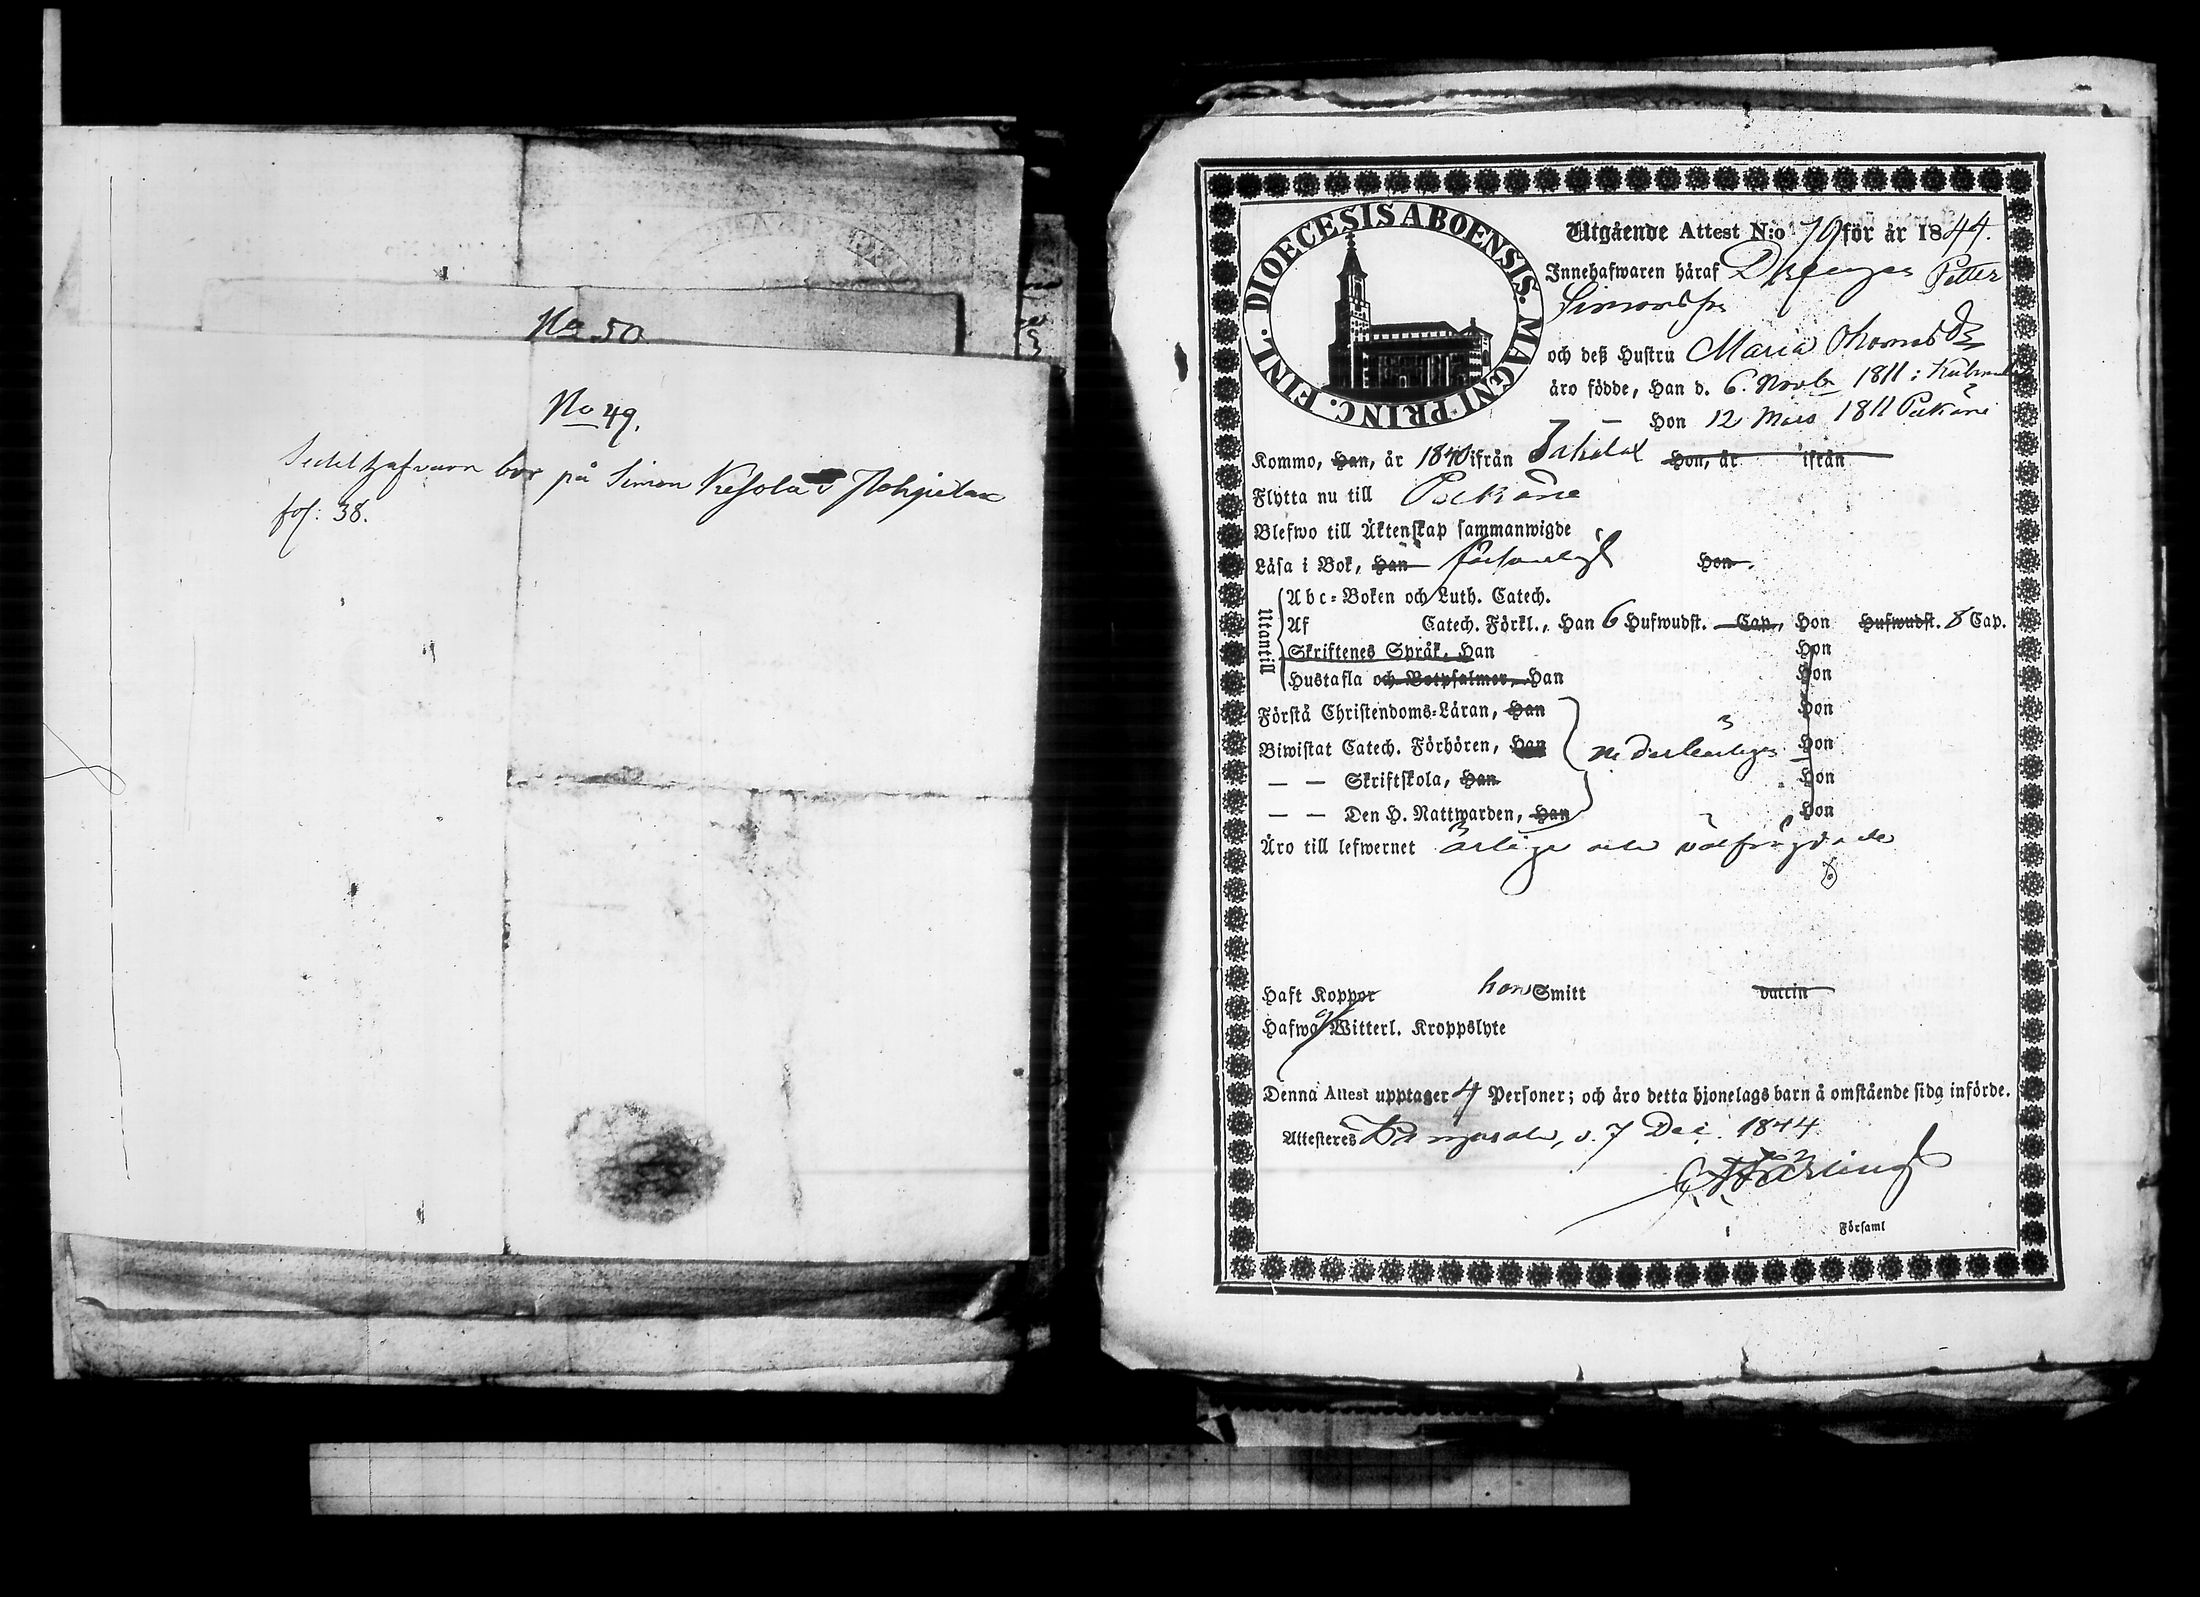 No 50
No 49.
Sedelhafvarn bor på Simon Kesola i Pohjalax
fol: 38.
DIOECESIS ABOENSIS. MAGNI PRINC. FINL.
Utgående Attest N:o 70 för år 1844.
Innehafwaren häraf Drengen Petter
Simonsson
och deß Hustru Maria Thomasdr
äro födde, Han d. 6 Novbr 1811 i
— — Hon 12 Mars 1811 Pelkäne
Kommo, Han, år 1840 ifrån Hon, år ifrån
Flytta nu till Pelkäne
Blefwo till Äktenskap sammanwigde
Läsa i Bok, Han försvarligt Hon
Utantill
Abc-Boken och Luth. Catech.
Af Catech. Förkl., Han 6 Hufwudst. Cap. Hon Hufwudst. 8 Cap.
Skriftenes Språk, Han Hon
Hustafla och Botpsalmer, Han Hon
Förstå Christendoms-Läran, Han Hon
Biwistat Catech. Förhören, Han Hon
— — Skriftskola, Han Hon
— — Den H. Nattwarden, Han Hon
Äro till lefwernet ärlige och välfrägdade
Haft Koppor hon Smitt vaccin
Hafwa ej Witterl. Kroppslyte
Denna Attest upptager 4 Personer; och äro detta hjonelags barn å omstående sida införde.
Attesteres Kangasala, d. 7 Dec. 1844
Församl